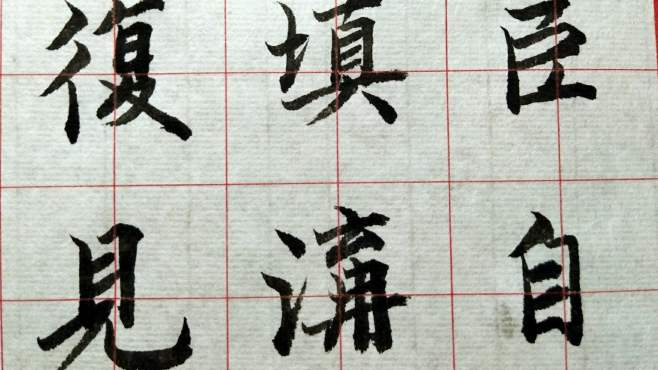 臣自
填溝
復見